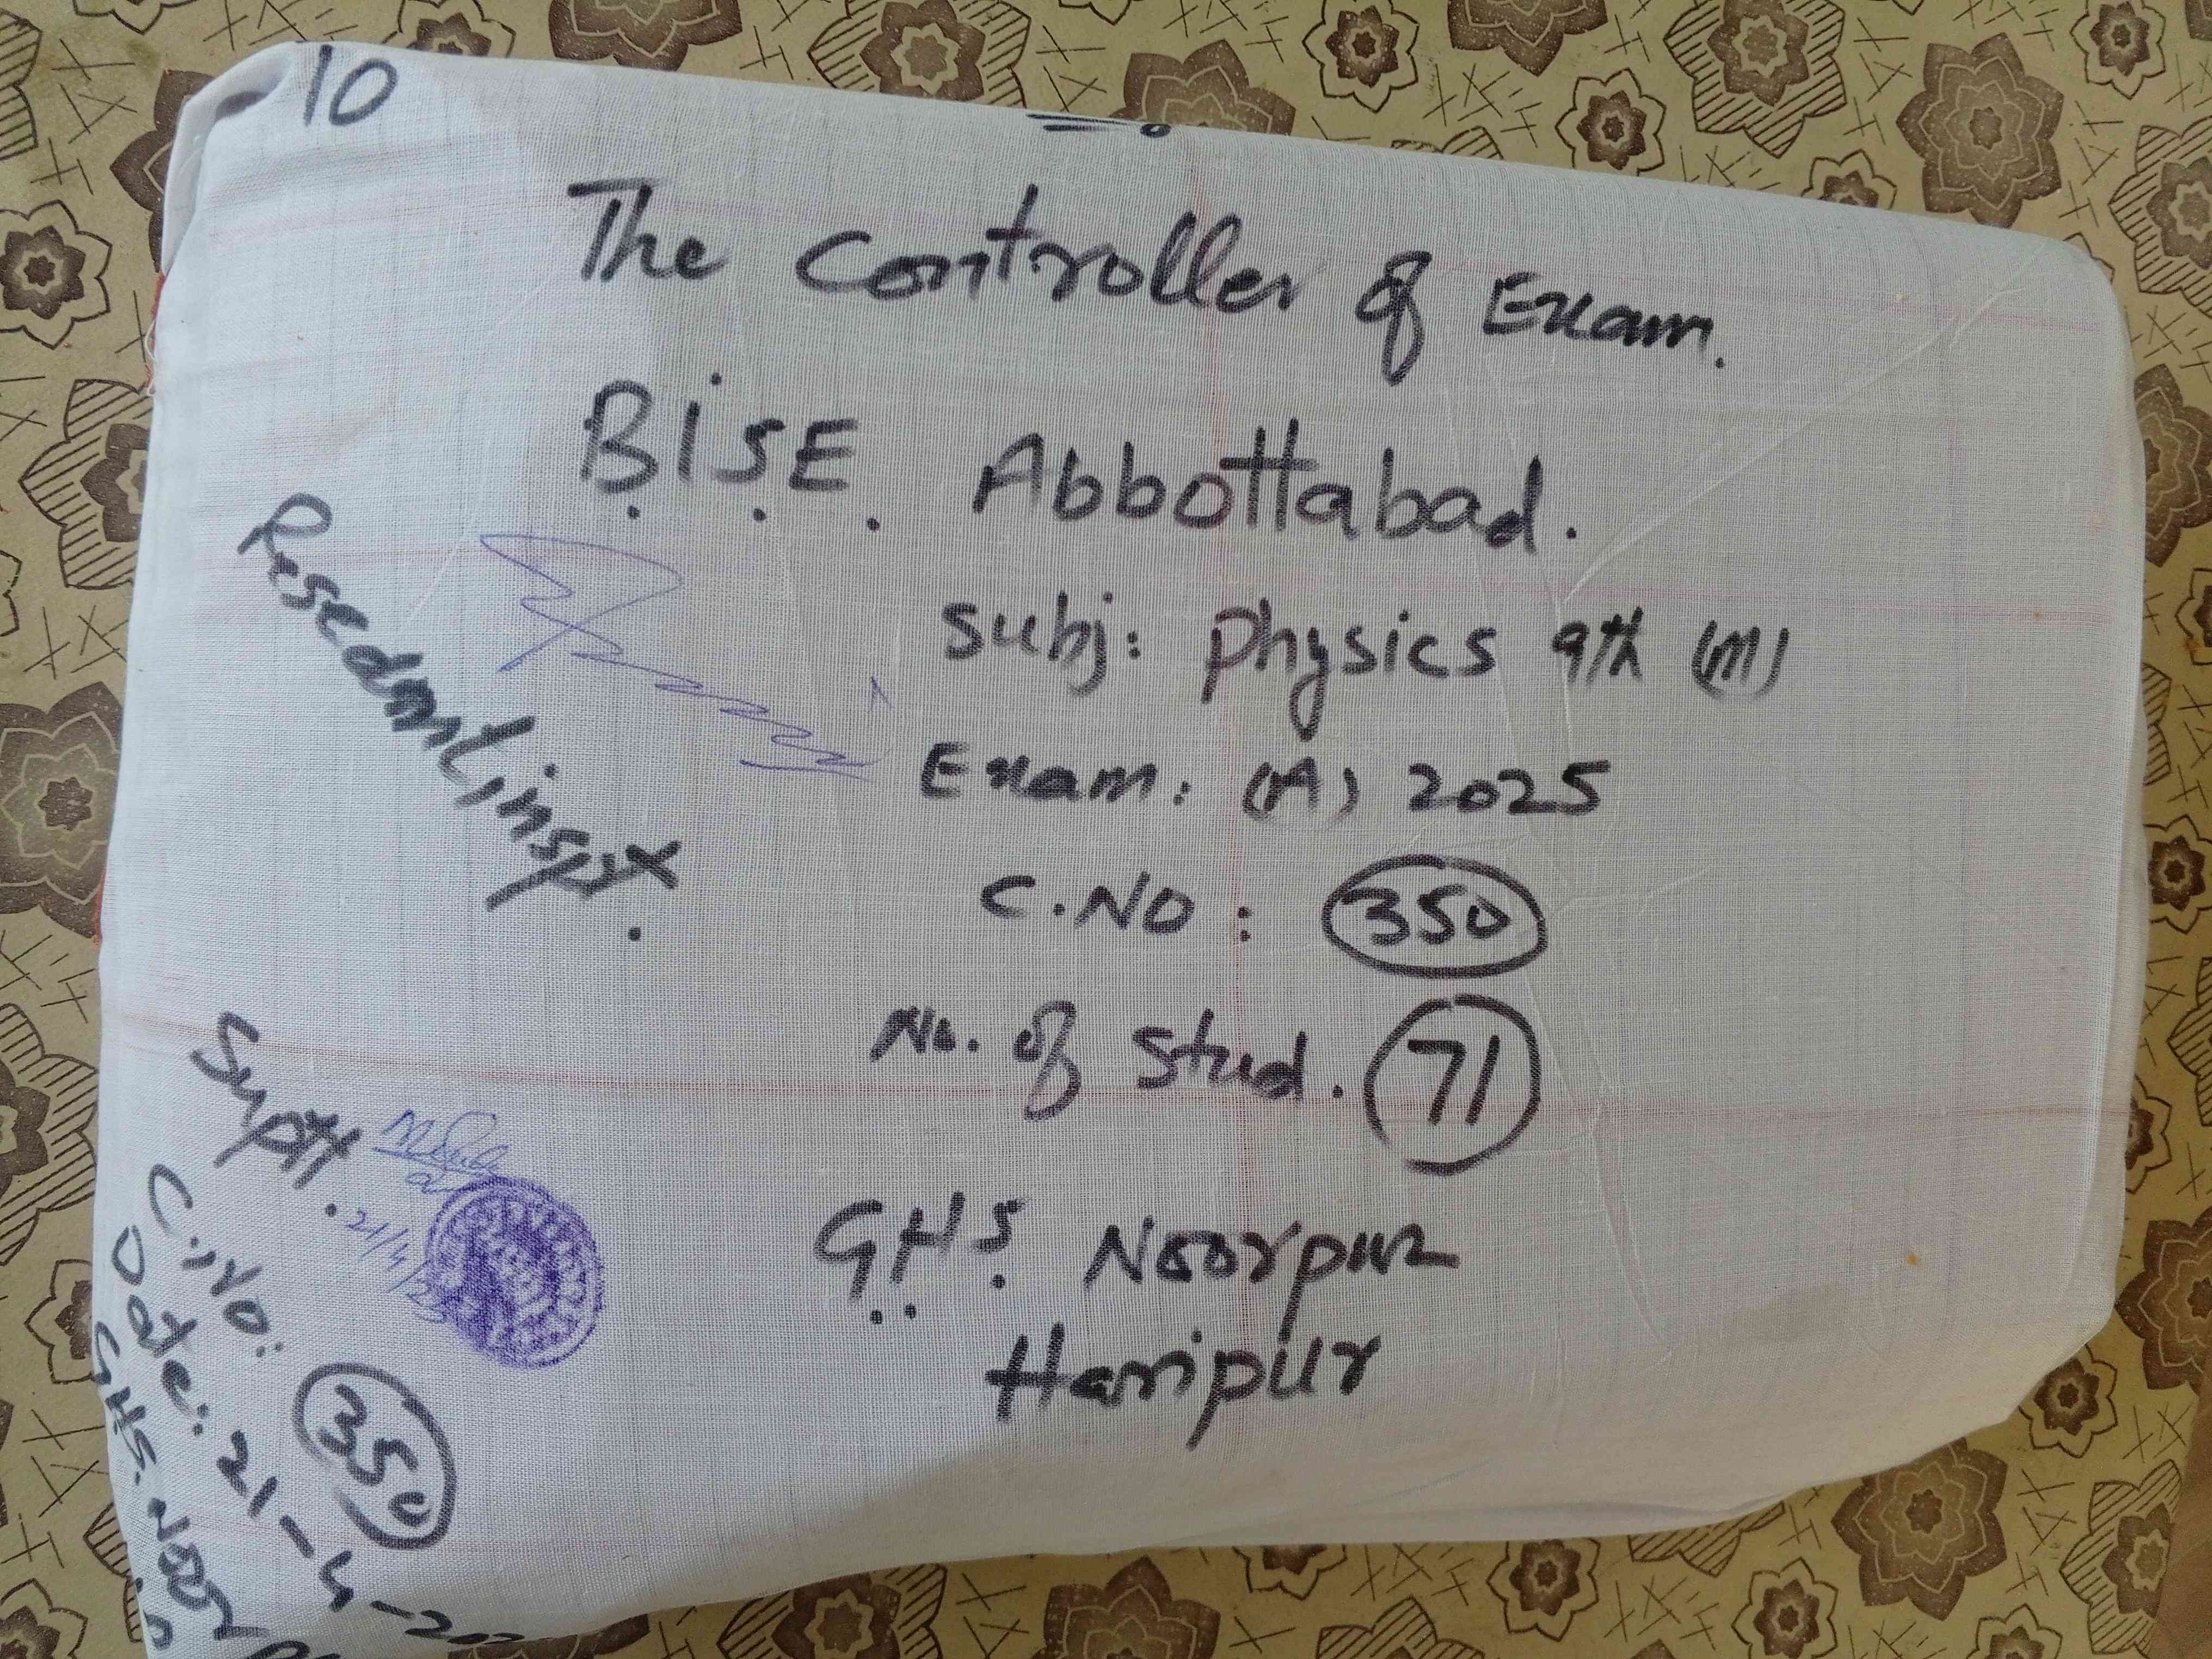 10
To.
The Controller of Exam.
B.I.S.E. Abbottabad.
Subj: Physics 9th (M)
Exam: (A) 2025
C.NO: 350
No. of Stud. 71
G.H.S. Noorpur
Haripur
Resedmtinspt.
Suptt.
21/4/25
C.No: 350
Date: 21-4-202
GHS. Noorp